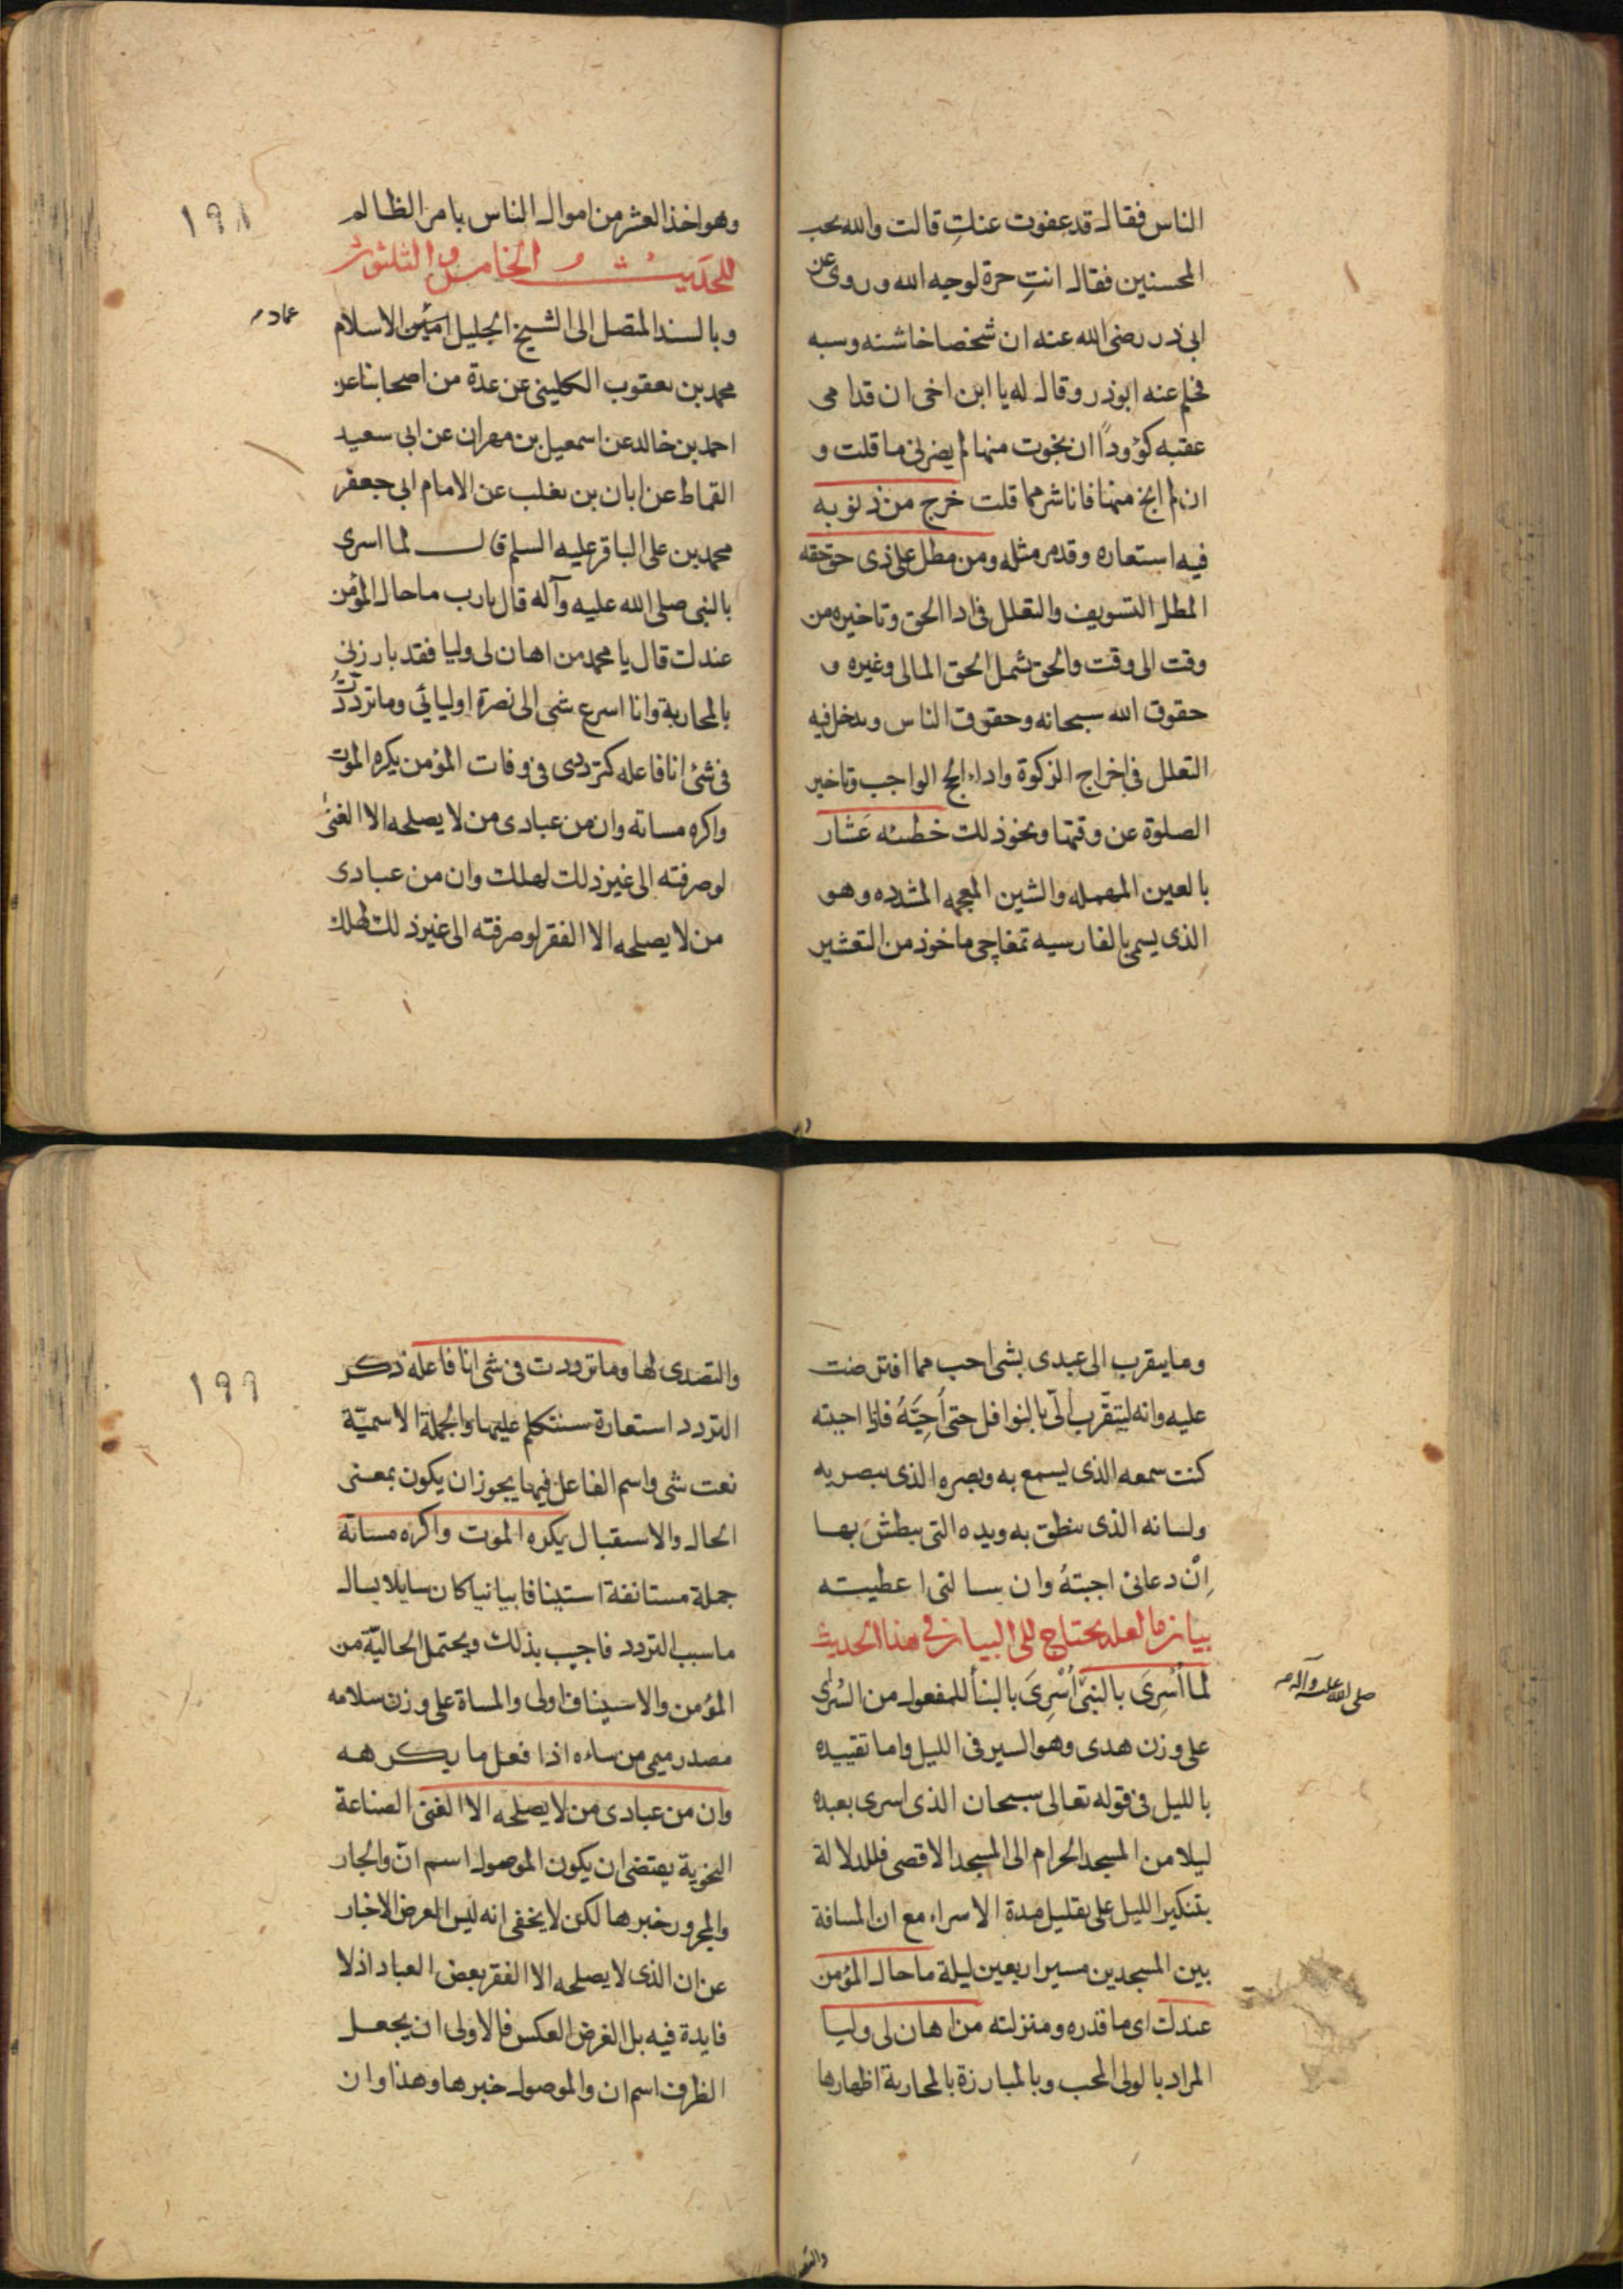 الناس فقال قد عفوت عنكِ قالت والله يحب
المحسنين فقال انتِ حرة لوجه الله وروى عن
ابى ذر رضى الله عنه ان شخصا خاشنه وسبه
فحلم عنه ابوذر وقال له يا ابن اخى ان قدامى
عقبه كؤودًا ان نجوت منها لم يضرنى ما قلت و
ان لم انج منها فانا شر مما قلت خرج من ذنوبه
فيه استعاره وقدمر مثله ومن مطل على ذى حق حقه
المطل التسويف والتعلل فى ادا الحق وتاخيره من
وقت الى وقت والحق يشمل الحق المالى وغيره و
حقوق الله سبحانه وحقوق الناس ويدخل فيه
التعلل فى اخراج الزكوة واداء الحج الواجب وتاخير
الصلوة عن وقتها ونحو ذلك خطئه عَشار
بالعين المهمله والشين المعجمه المشدده وهو
الذى يسمى بالفارسيه تمغاچى ماخوذ من التعشير
وهو اخذ العشر من اموال الناس بامر الظالم
١٩٨
الحديث الخامس والثلثون
وبالسند المتصل الى الشيخ الجليل امين الاسلام
عماد
محمد بن يعقوب الكلينى عن عدة من اصحابنا عن
احمد بن خالد عن اسمعيل بن مهران عن ابى سعيد
القماط عن ابان بن تغلب عن الامام ابى جعفر
محمد بن على الباقر عليه السلم قال لما اسرى
بالنبى صلى الله عليه وآله قال يارب ما حال المؤمن
عندك قال يا محمد من اهان لى وليا فقد بارزنى
بالمحاربة وانا اسرع شى الى نصرة اوليائي وما ترددتُ
فى شئ انا فاعله كترددى فى وفات المؤمن يكره الموت
واكره مساته وان من عبادى من لا يصلحه الا الغنى
لو صرفته الى غير ذلك لهلك وان من عبادى
من لا يصلحه الا الفقر لو صرفته الى غير ذلك لهلك
وما يتقرب الى عبدى بشى احب مما افترضت
عليه وانه ليتقرب الىّ بالنوافل حتى اُحِبَّهُ فاذا احببته
كنت سمعه الذى يسمع به وبصره الذى يبصر به
ولسانه الذى ينطق به ويده التى يبطش بها
اِنْ دعانى اجبتهُ وان سالنى اعطيته
بيان ما لعله يحتاج الى البيان فى هذا الحديث
لما اُسْرِىَ بالنبى اُسْرِىَ بالبنأ للمفعول من السُرى
صلى الله عليه وآله
على وزن هدى وهو السير فى الليل واما تقييده
بالليل فى قوله تعالى سبحان الذى اسرى بعبده
ليلا من المسجد الحرام الى المسجد الاقصى فللدلالة
بتنكير الليل على تقليل مدة الاسراء مع ان المسافة
بين المسجدين مسير اربعين ليلة ما حال المؤمن
عندك اى ما قدره ومنزلته من اهان لى وليا
المراد بالولى المحب وبالمبارزة بالمحاربة اظهارها
والتصدى لها وما ترددت فى شى انا فاعله ذكر
١٩٩
التردد استعارة سنتكلم عليها والجملة الاسميّة
نعت شى واسم الفاعل فيها يجوز ان يكون بمعنى
الحال والاستقبال يكره الموت واكره مساتة
جملة مستانفة استينافا بيانيا كان سايلا يسال
ما سبب التردد فاجيب بذلك ويحتمل الحاليّة من
المؤمن والاستيناف اولى والمساة على وزن سلامه
مصدر ميمى من ساءه اذا فعل ما يكرهه
وان من عبادى من لا يصلحه الا الغنى الصناعة
النحوية يقتضى ان يكون الموصول اسم انّ والجار
والمجرور خبرها لكن لا يخفى انه ليس الغرض الاخبار
عن ان الذى لا يصلحه الا الفقر بعض العباد اذلا
فايدة فيه بل الغرض العكس فالاولى ان يجعل
الظرف اسم ان والموصول خبرها وهذا وان